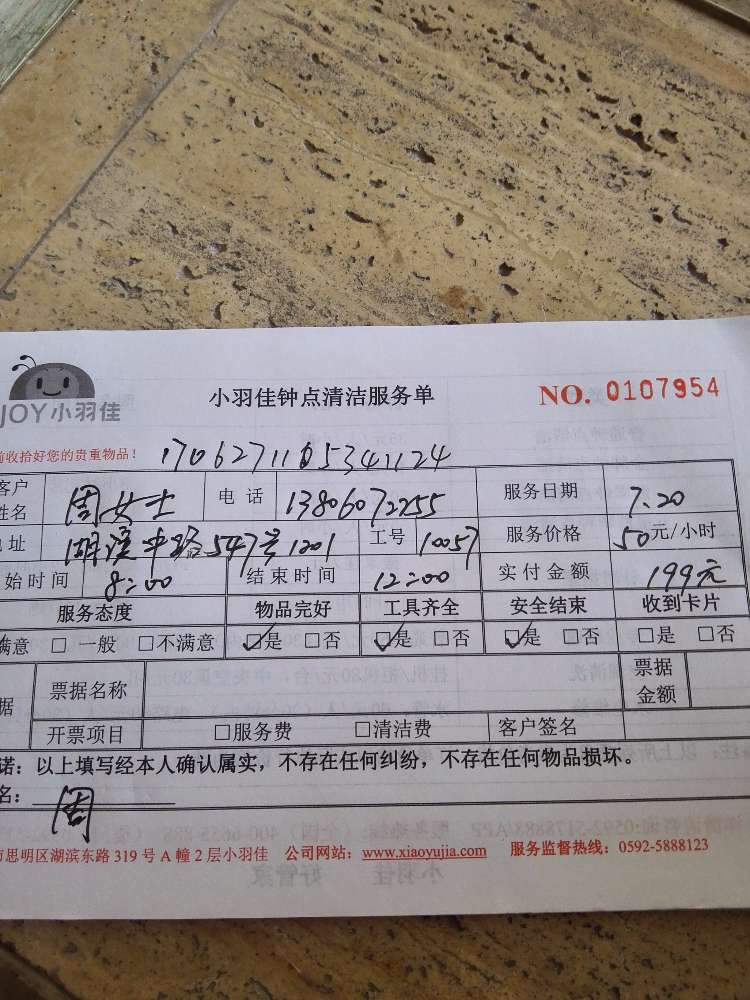 JOY小羽佳
小羽佳钟点清洁服务单
NO. 0107954
前收拾好您的贵重物品！ 170627110534 1124
客户姓名 周女士 电 话 13806072255 服务日期 7.20
址 湖滨中路547号1201 工号 10057 服务价格 50元/小时
始时间 8:00 结束时间 12:00 实付金额 199元
服务态度 物品完好 工具齐全 安全结束 收到卡片
满意 □ 一般 □不满意 ☑是 □否 ☑是 □否 ☑是 □否 □是 □否
据 票据名称 票据金额
开票项目 □服务费 □清洁费 客户签名
诺：以上填写经本人确认属实，不存在任何纠纷，不存在任何物品损坏。
名： 周
市思明区湖滨东路 319 号 A 幢 2 层小羽佳 公司网站：www.xiaoyujia.com 服务监督热线：0592-5888123